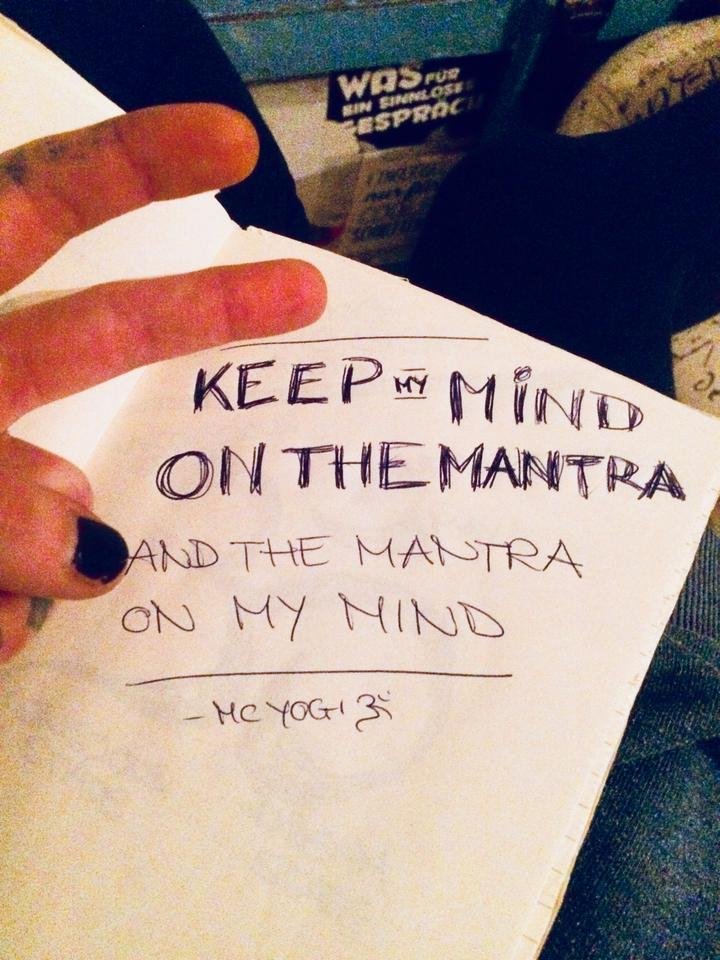 WAS FÜR
EIN SINNLOSES
GESPRÄCH
KEEP MY MiND
ON THE MANTRA
AND THE MANTRA
ON MY MIND
- MC YOGI ॐ